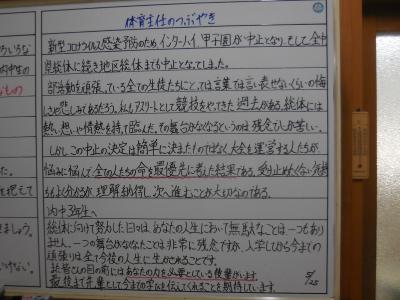 体育主任のつぶやき
新型コロナウイルス感染予防のため、インターハイ、甲子園が中止となり、そして全中
県総体に続き地区総体までも中止となってしまった。
部活動を頑張っている全ての生徒たちにとっては言葉では言い表せないくらいの悔
しさや悲しみであるだろう。私もアスリートとして競技をやってきた過去がある。総体には
熱い想いや情熱を持って臨んだ。その舞台がなくなるというのは残念でしか苦しい。
しかしこの中止の決定は簡単に決まったものではなく大会を運営する人たちが
悩みに悩んで、全ての人たちの命を最優先に考えた結果である。受け止めたくない気持
ちも十分分かるが、理解納得し、次へ進むことが大切なのである。
内中3年生へ
総体に向けて努力した日々は、あなたの人生において無駄なことは一つもあり
ません。一つの舞台がなくなったことは非常に残念ですが、入学してから今までの
頑張りは全て今後の人生に生かされることです。
また皆さんの目の前にはあなたの力を必要としている後輩がいます。
最後まで先輩として今までの学びを伝えてくれることを期待しています。
5/25
ういろな
内中生の
もの
た。
を控えて
きましょう。
いけない。